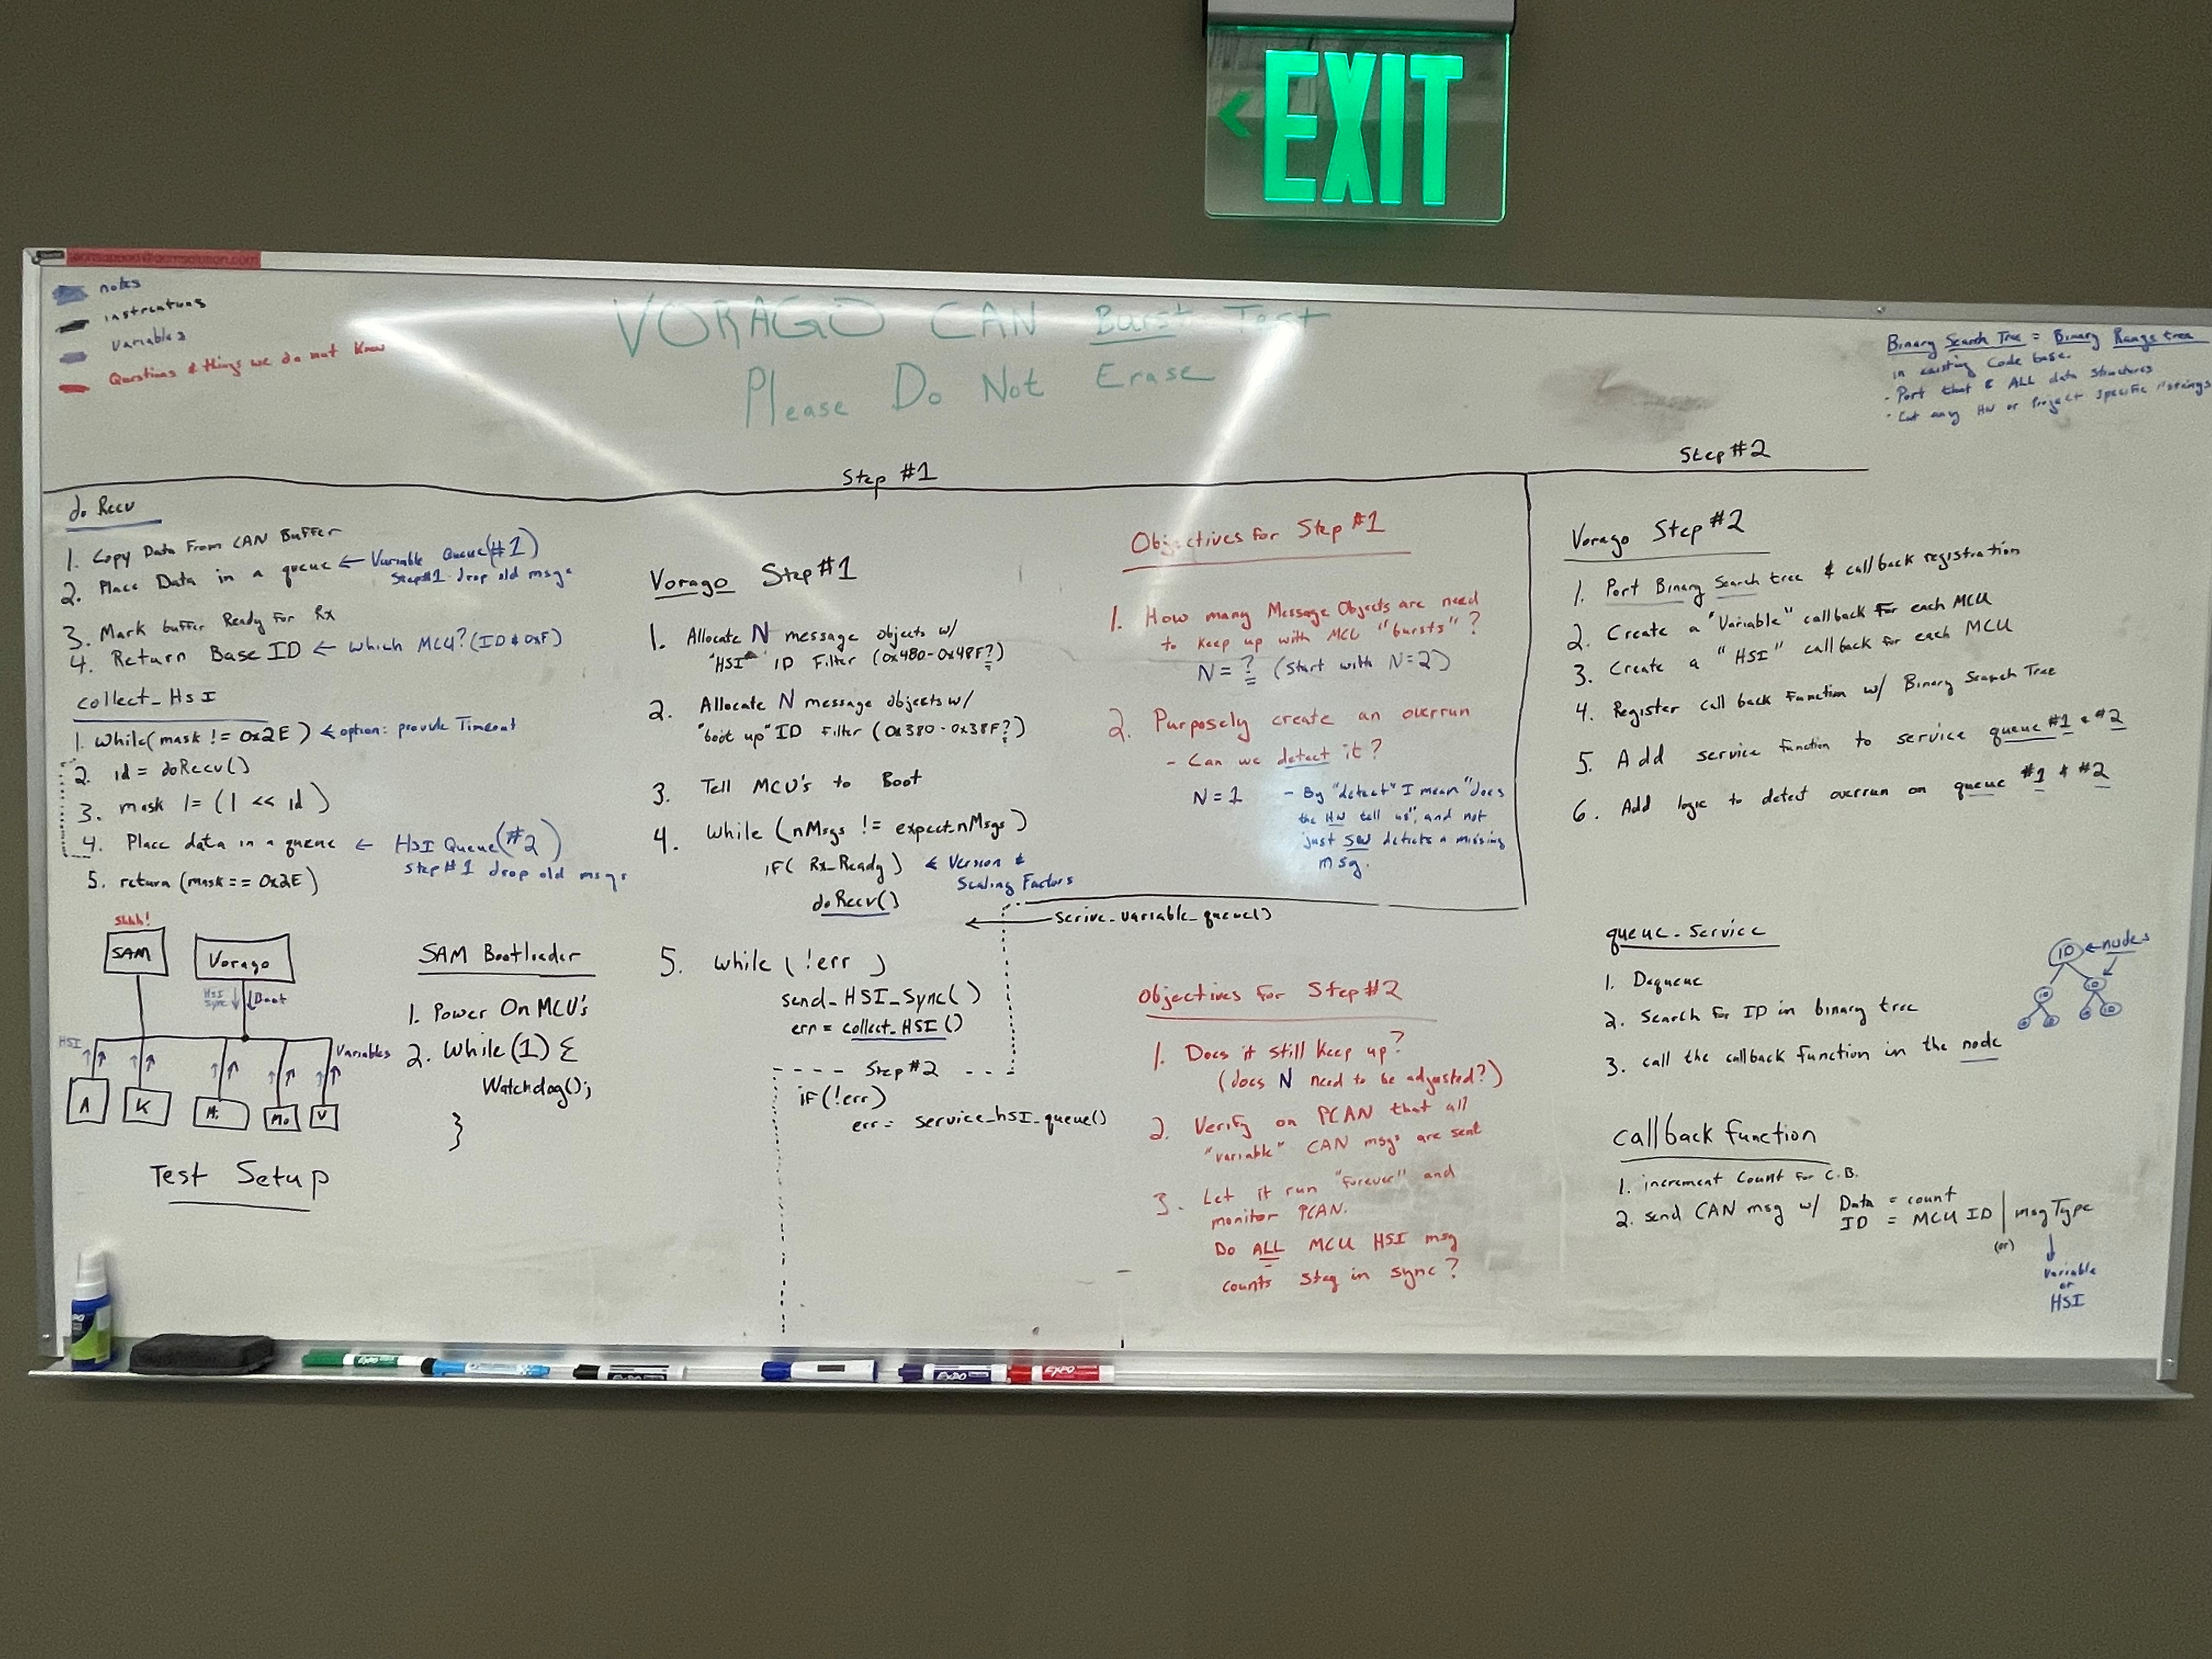 EXIT
techsupport@acmsolution.com
notes
instructions
variables
Questions & things we do not know
VORAGO CAN Burst Test
Please Do Not Erase
Binary Search Tree = Binary Range tree
in existing Code base.
- Port that & ALL data structures
- Cut any HW or Project specific
Step #1
Step #2
do Recv
1. Copy Data From CAN Buffer
2. Place Data in a queue ← Variable Queue (#1)
Step#1 drop old msgs
3. Mark buffer Ready for Rx
4. Return Base ID ← which MCU? (ID & 0xF)
collect_HSI
1. While (mask != 0x2E) ← option: provide Timeout
2. id = doRecv()
3. mask |= (1 << id)
4. Place data in a queue ← HSI Queue (#2)
step #1 drop old msgs
5. return (mask == 0x2E)
Shhh!
SAM
Vorago
HSI Sync ↓ ↓ Boot
HSI
Variables
A
K
Mi
Mo
V
Test Setup
SAM Bootloader
1. Power On MCU's
2. While(1) {
Watchdog();
}
Vorago Step #1
1. Allocate N message objects w/
"HSI" ID Filter (0x480-0x48F?)
2. Allocate N message objects w/
"boot up" ID Filter (0x380-0x38F?)
3. Tell MCU's to Boot
4. While (nMsgs != expect_nMsgs)
if( Rx_Ready) ← Version &
Scaling Factors
doRecv()
← serive_variable_queue()
5. While ( !err )
send_HSI_Sync()
err = collect_HSI()
Step #2
if(!err)
err = service_hSI_queue()
Objectives for Step #1
1. How many Message Objects are need
to keep up with MCU "bursts"?
N = ? (Start with N=2)
2. Purposely create an overrun
- Can we detect it?
N = 1
- By "detect" I mean "does
the HW tell us", and not
just SW detects a missing
msg.
Objectives for Step #2
1. Does it still keep up?
(does N need to be adjusted?)
2. Verify on PCAN that all
"variable" CAN msgs are sent
3. Let it run "forever" and
monitor PCAN.
Do ALL MCU HSI msg
counts stay in sync?
Vorago Step #2
1. Port Binary Search tree & callback registration
2. Create a "Variable" callback for each MCU
3. Create a "HSI" callback for each MCU
4. Register call back Function w/ Binary Search Tree
5. Add service function to service queue #1 & #2
6. Add logic to detect overrun on queue #1 & #2
queue_Service
1. Dequeue
2. Search for ID in binary tree
3. call the callback function in the node
ID ← nodes
Callback function
1. increment Count for C.B.
2. send CAN msg w/ Data = count
ID = MCU ID | msgType
(or)
variable
or
HSI
EXPO
EXPO
EXPO
EXPO